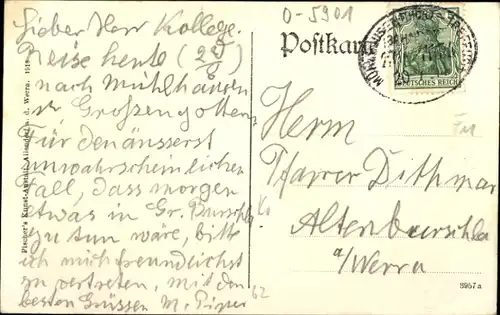 Lieber Herr Kollege.
Reise heute (29/6)
nach Mühlhausen
Großengottern.
Für den äusserst
unwahrscheinlichen
Fall, dass morgen
etwas in Gr. Burschla
zu tun wäre, bitte
ich mich freundlichst
zu vertreten, mit den
besten Grüssen M. Pieper
0-5901
Postkarte
DEUTSCHES REICH
Herrn
Pfarrer Dithmar
Altenburschla
a/Werra
62
8957a
Fischer's Kunst-Anstalt, Allendorf a. d. Werra. 1918